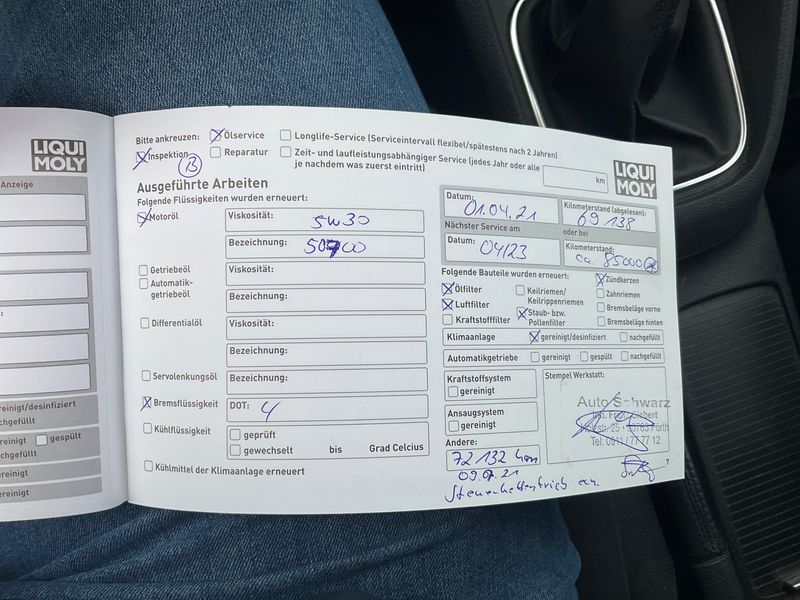 LIQUI MOLY
Anzeige
einigt/desinfiziert
chgefüllt
einigt gespült
chgefüllt
einigt
einigt
Bitte ankreuzen: Ölservice Longlife-Service (Serviceintervall flexibel/spätestens nach 2 Jahren)
Inspektion B Reparatur Zeit- und laufleistungsabhängiger Service (jedes Jahr oder alle km
je nachdem was zuerst eintritt)
LIQUI MOLY
Ausgeführte Arbeiten
Folgende Flüssigkeiten wurden erneuert:
Motoröl Viskosität: 5W30
Bezeichnung:
Getriebeöl Viskosität:
Automatik-
getriebeöl Bezeichnung:
Differentialöl Viskosität:
Bezeichnung:
Servolenkungsöl Bezeichnung:
Bremsflüssigkeit DOT: 4
Kühlflüssigkeit geprüft
gewechselt bis Grad Celcius
Kühlmittel der Klimaanlage erneuert
Datum: 01.04.21 Kilometerstand (abgelesen): 69 138
Nächster Service am oder bei
Datum: 04/23 Kilometerstand: ca. 85000
Folgende Bauteile wurden erneuert: Zündkerzen
Ölfilter Keilriemen/ Zahnriemen
Keilrippenriemen
Luftfilter Bremsbeläge vorne
Kraftstofffilter Staub- bzw. Bremsbeläge hinten
Pollenfilter
Klimaanlage gereinigt/desinfiziert nachgefüllt
Automatikgetriebe gereinigt gespült nachgefüllt
Kraftstoffsystem
gereinigt
Ansaugsystem
gereinigt
Andere:
72 132 km
09.07.21
Steuerkettentrieb ern.
Stempel Werkstatt:
Auto Schwarz
Tel. 0911 / 77 77 12
7